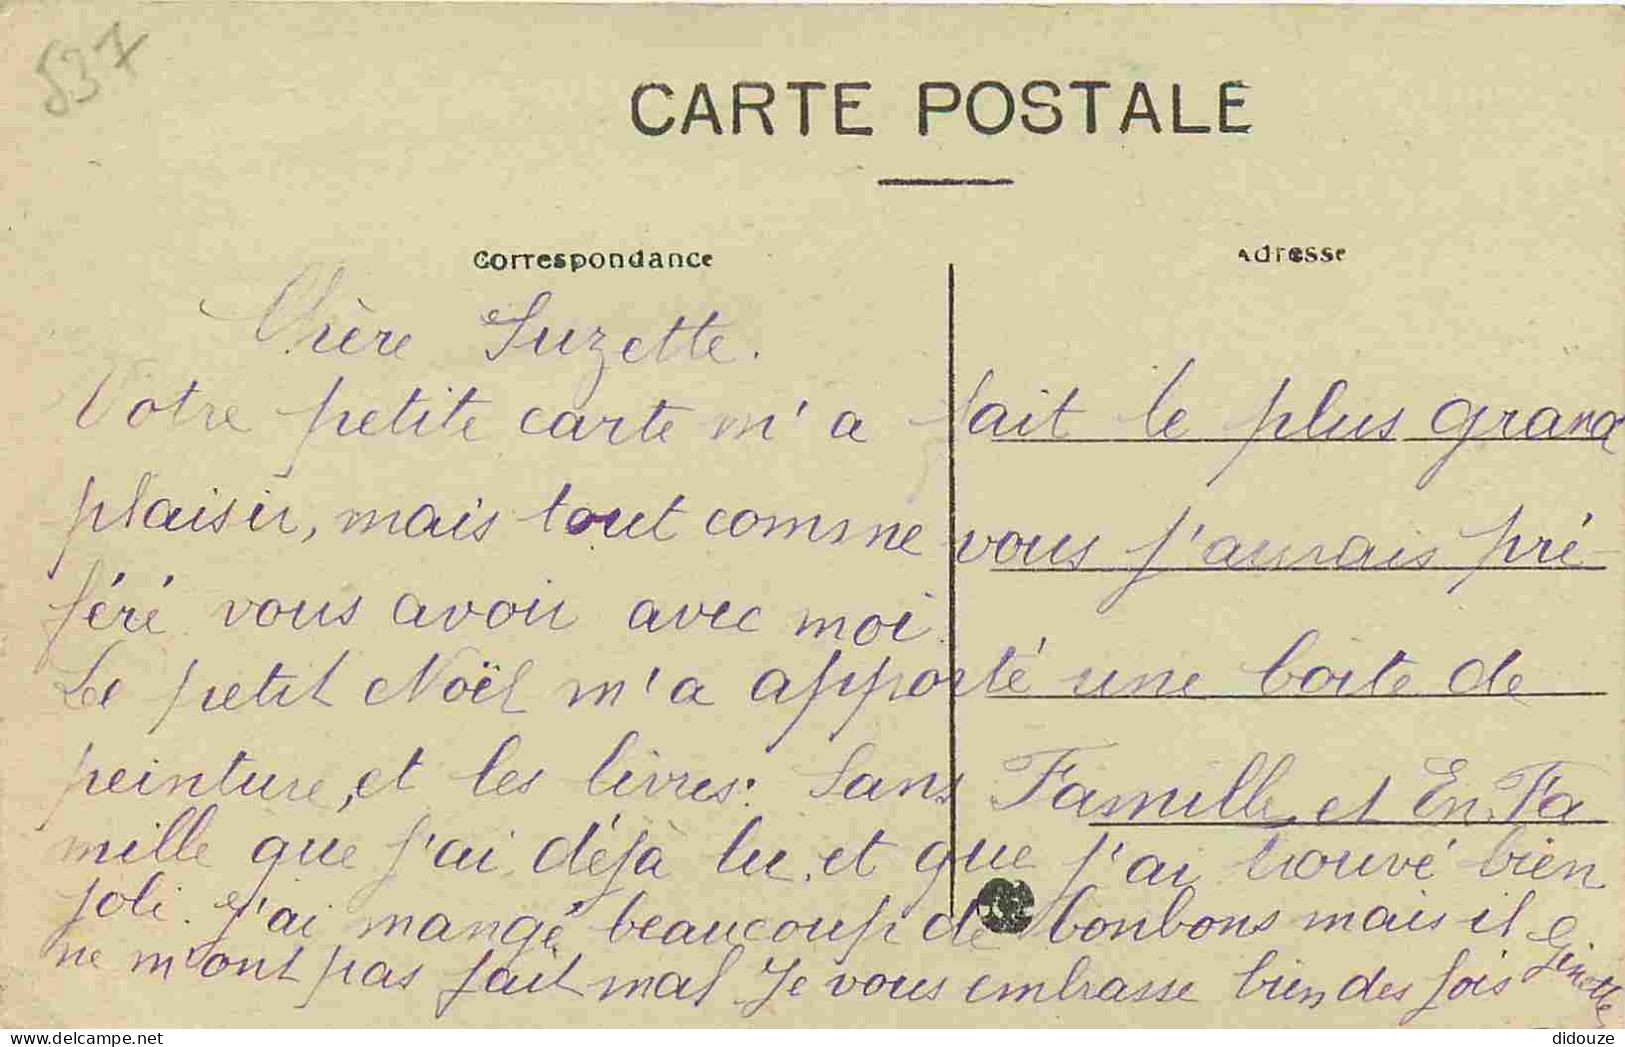 537
CARTE POSTALE
Correspondance
Adresse
Chère Suzette.
Votre petite carte m'a fait le plus grand
plaisir, mais tout comme vous j'aurais pré-
féré vous avoir avec moi.
Le petit Noël m'a apporté une boite de
peinture, et les livres: Sans Famille, et En Fa
mille que j'ai déjà lu, et que j'ai trouvé bien
joli. J'ai mangé beaucoup de bonbons mais il
ne m'ont pas fait mal Je vous embrasse bien des fois Ginette
didouze